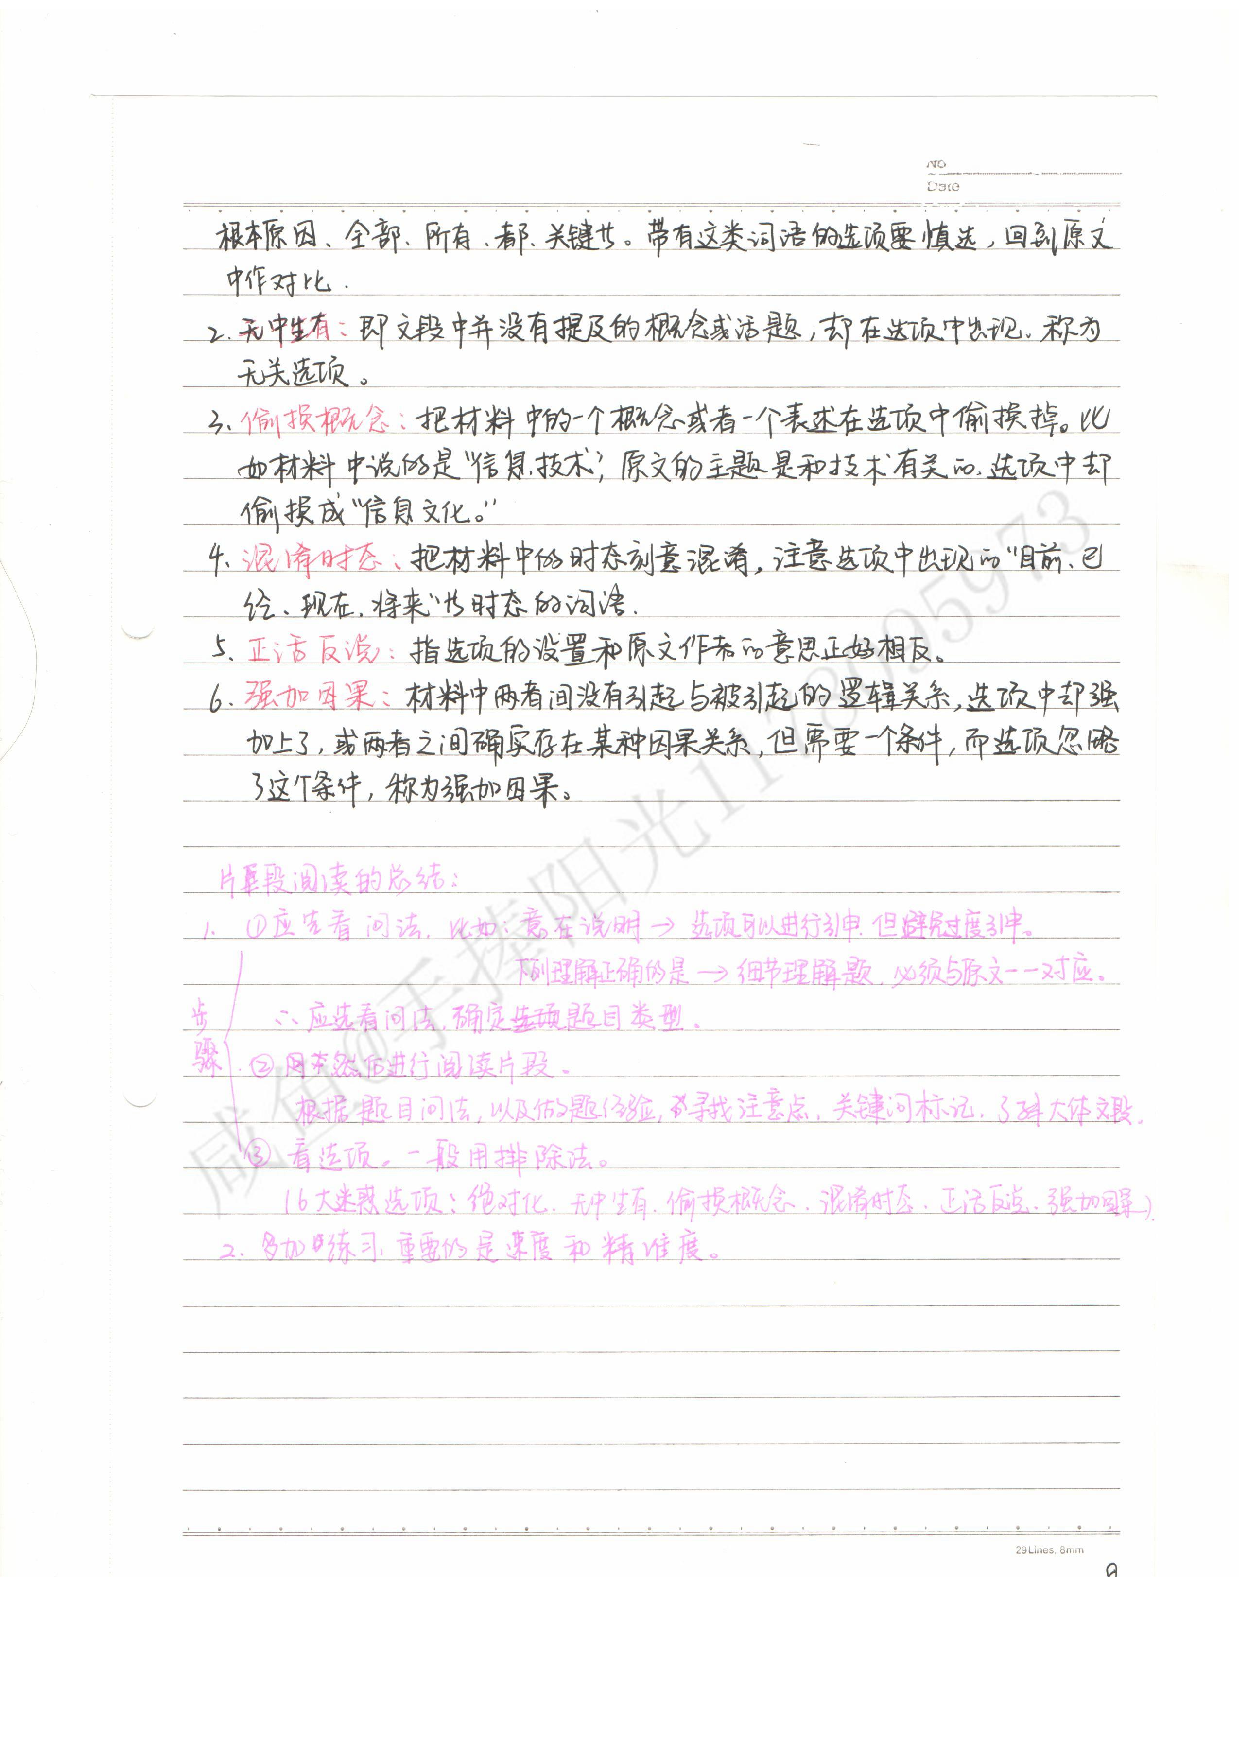 NO
Date
根本原因、全部、所有、都、关键性。带有这类词语的选项要慎选，回到原文
中作对比.
2. 无中生有：即文段中并没有提及的概念或话题，却在选项中出现，称为
无关选项。
3、偷换概念：把材料中的一个概念或者一个表述在选项中偷换掉。比
如材料中说的是“信息技术”，原文的主题是和技术有关的，选项中却
偷换成“信息文化。”
4、混淆时态：把材料中的时态刻意混淆，注意选项中出现的“目前、已
经、现在、将来”等时态的词语.
5、正话反说：指选项的设置和原文作者的意思正好相反。
6、强加因果：材料中两者间没有引起与被引起的逻辑关系，选项中却强
加上了，或两者之间确实存在某种因果关系，但需要一个条件，而选项忽略
了这个条件，称为强加因果。
片段阅读的总结：
1. ①应先看问法，比如：意在说明→选项可以进行引申，但避免过度引申。
下列理解正确的是→细节理解题，必须与原文一一对应。
∴应先看问法，确定题目类型。
步骤
②然后进行阅读片段。
根据题目问法，以及做题经验，寻找注意点，关键词标记，了解大体文段。
③看选项。一般用排除法。
(6大迷惑选项：绝对化、无中生有、偷换概念、混淆时态、正话反说、强加因果)
2. 多加练习，重要的是速度和精准度。
29 Lines, 8mm
咸鱼@手捧阳光1178095973